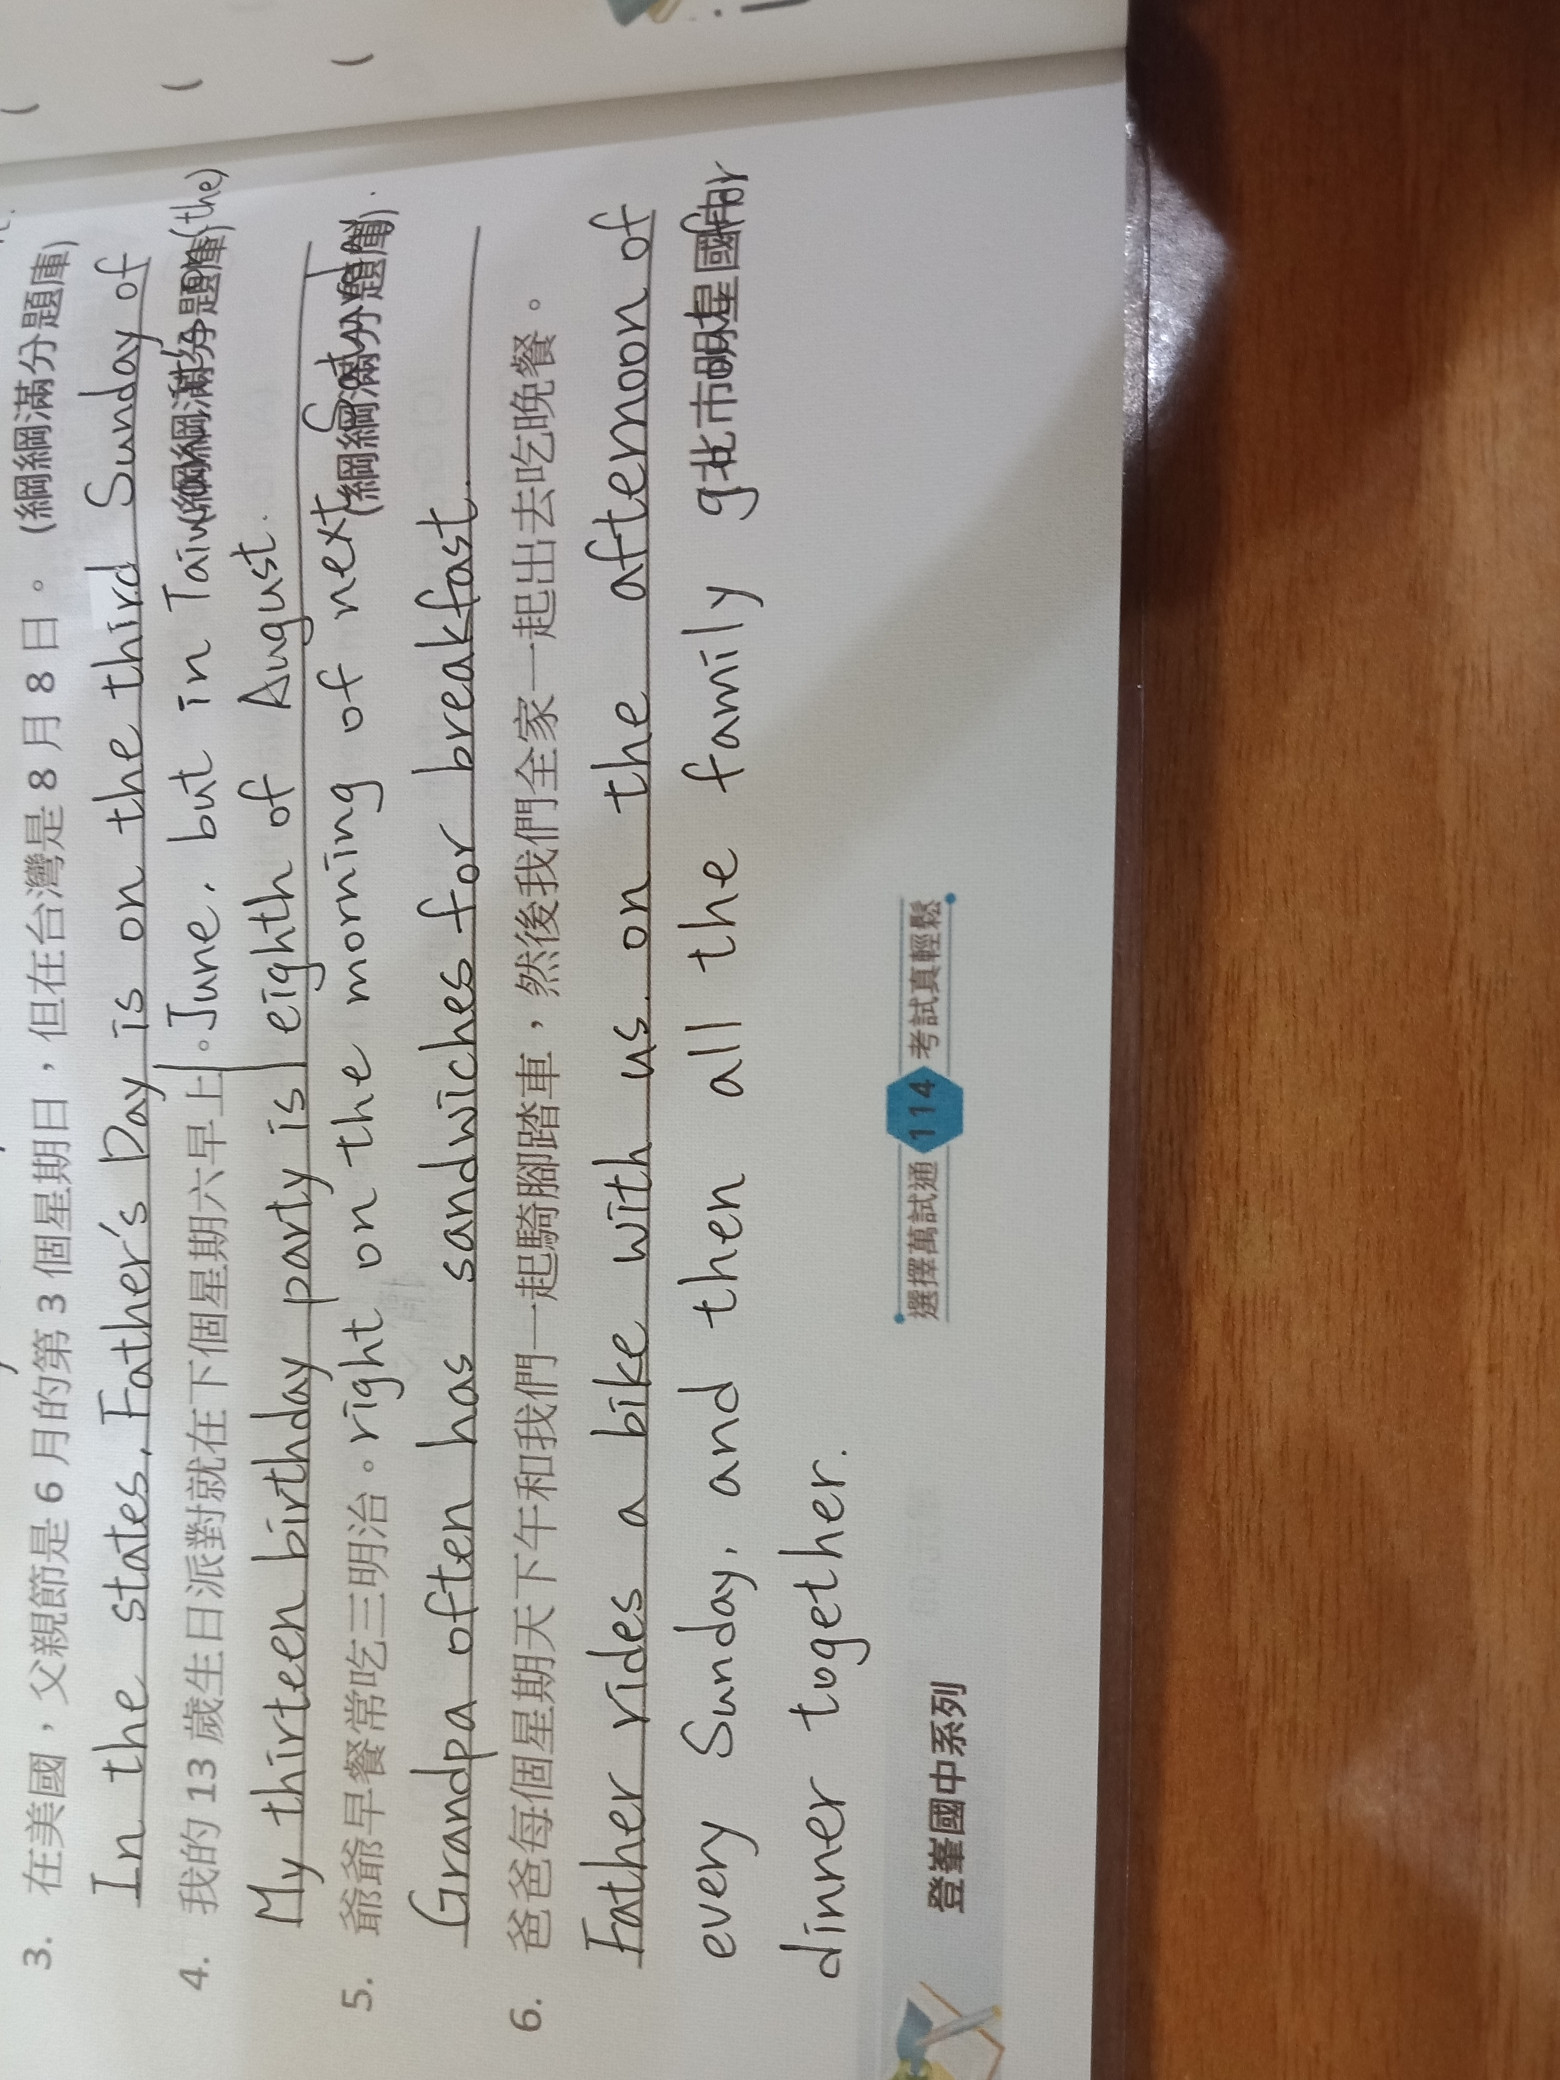 3. 在美國，父親節是 6 月的第 3 個星期日，但在台灣是 8 月 8 日。 (綱綱滿分題庫)
In the states, Father's Day is on the third Sunday of
June, but in (the)
eighth of August.
4. 我的 13 歲生日派對就在下個星期六早上。 (綱綱滿分題庫)
My thirteen birthday party is
right on the morning of next
5. 爺爺早餐常吃三明治。 (綱綱滿分題庫)
Grandpa often has sandwiches for breakfast.
6. 爸爸每個星期天下午和我們一起騎腳踏車，然後我們全家一起出去吃晚餐。
Father rides a bike with us on the afternoon of
every Sunday, and then all the family for
北市明星國中
dinner together.
登峯國中系列
選擇萬試通 114 考試真輕鬆